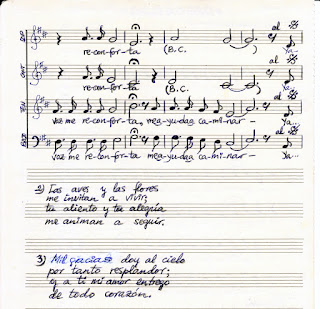 al 𝄋
re-con-for-ta (B.C. Ya...
al 𝄋
re-con-for-ta (B.C. Ya...
al 𝄋
voz me re-con-for-ta, me a-yu-da a ca-mi-nar- Ya...
al 𝄋
voz me re-con-for-ta me a-yu-da a ca-mi-nar- Ya...
2) Las aves y las flores
me invitan a vivir;
tu aliento y tu alegría
me animan a seguir.
3) Mil gracias doy al cielo
por tanto resplandor;
y a ti mi amor entrego
de todo corazón.